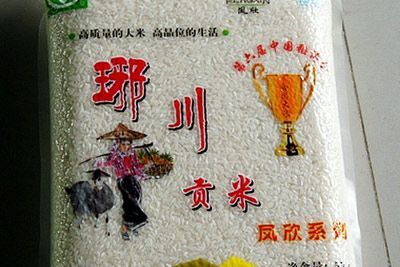 凤欣
高质量的大米 高品位的生活
第六届中国
瑯川
贡米
凤欣系列
净含量